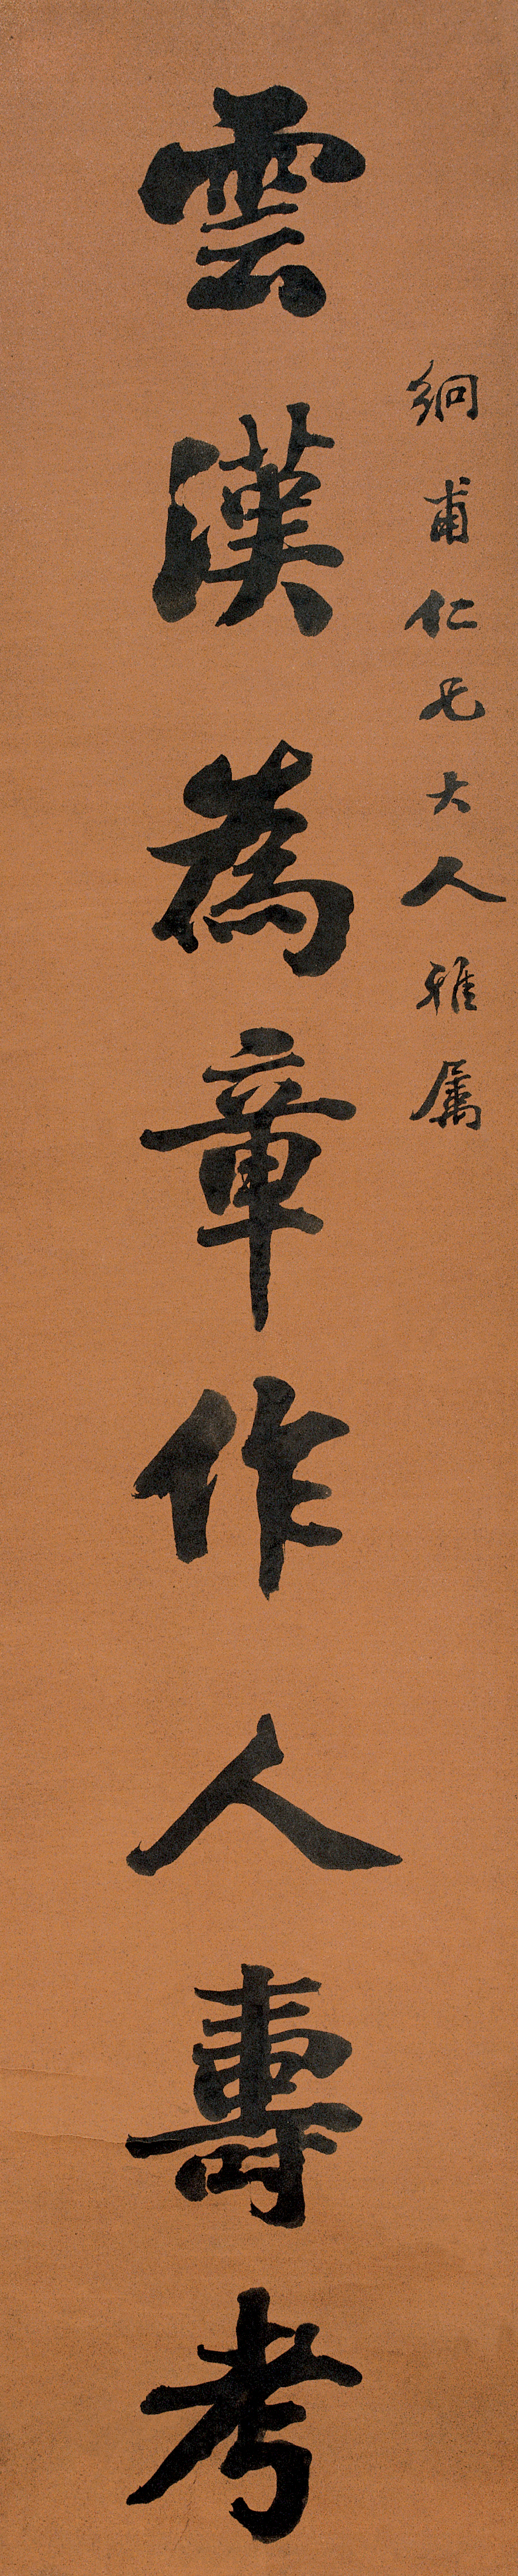 絅甫仁兄大人雅属
雲漢為章作人壽考